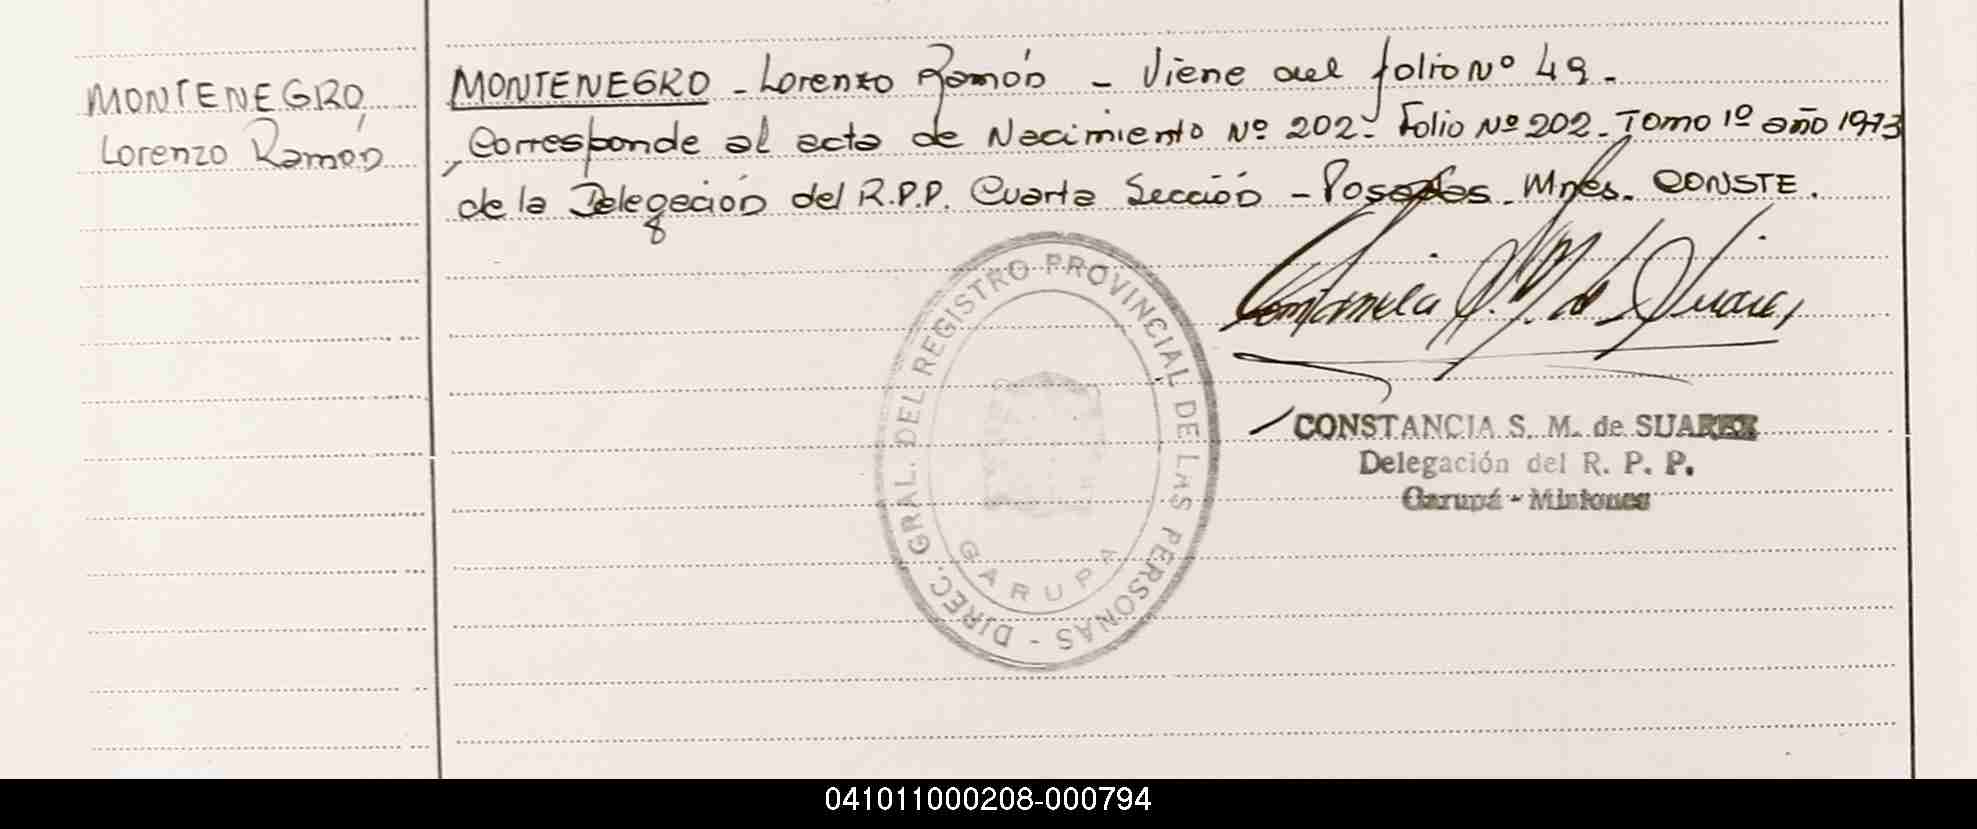 MONTENEGRO
Lorenzo Ramón
MONTENEGRO - Lorenzo Ramón - Viene del folio Nº 49.
Corresponde al acta de Nacimiento Nº 202- Folio Nº 202- Tomo 1º año 1973
de la Delegación del R.P.P. Cuarta Sección - Posadas. Mnes. CONSTE.
Constancia S. M. de Suarez
DIREC. GRAL. DEL REGISTRO PROVINCIAL DE LAS PERSONAS -
GARUPA
CONSTANCIA S. M. de SUAREZ
Delegación del R. P. P.
Garupá - Misiones
041011000208-000794